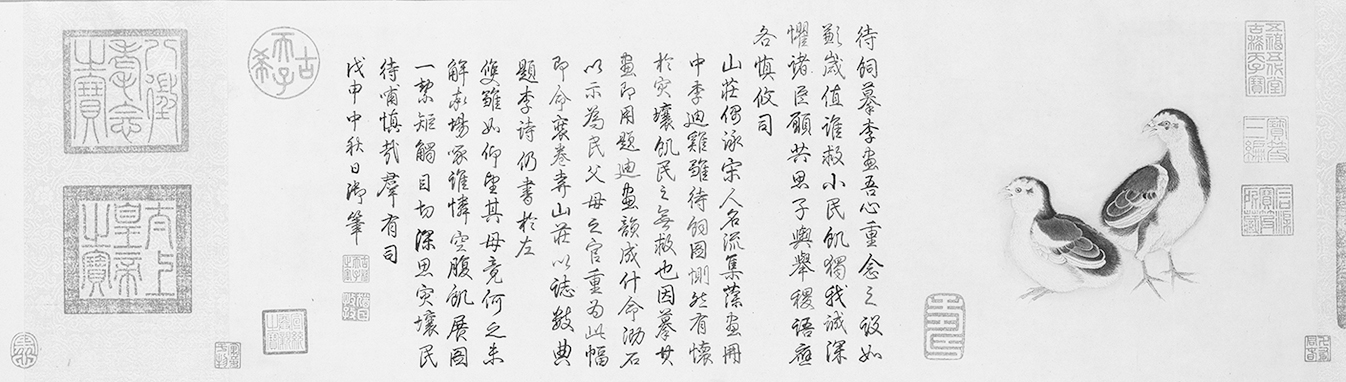 五福五代堂古稀天子寶
寶笈三編
石渠寶笈所藏
待飼摹李畫吾心重念之設如
歉歲值誰救小民飢獨我誠深
懼諸臣願共思子輿舉稷語應
各慎攸司
山莊偶詠宋人名流集藻畫冊
中李迪雞雛待飼圖惻然有懷
於災壤飢民之無救也因摹其
畫即用題迪畫韻成什命泐石
以示為民父母之官重為此幅
即命裝卷弆山莊以誌數典
題李詩仍書於左
雙雛如仰望其母竟何之未
解求場啄誰憐空腹飢展圖
一絜矩觸目切深思災壤民
待哺慎哉羣有司
戊申中秋日御筆
古希天子
八徵耄念之寶
太上皇帝之寶